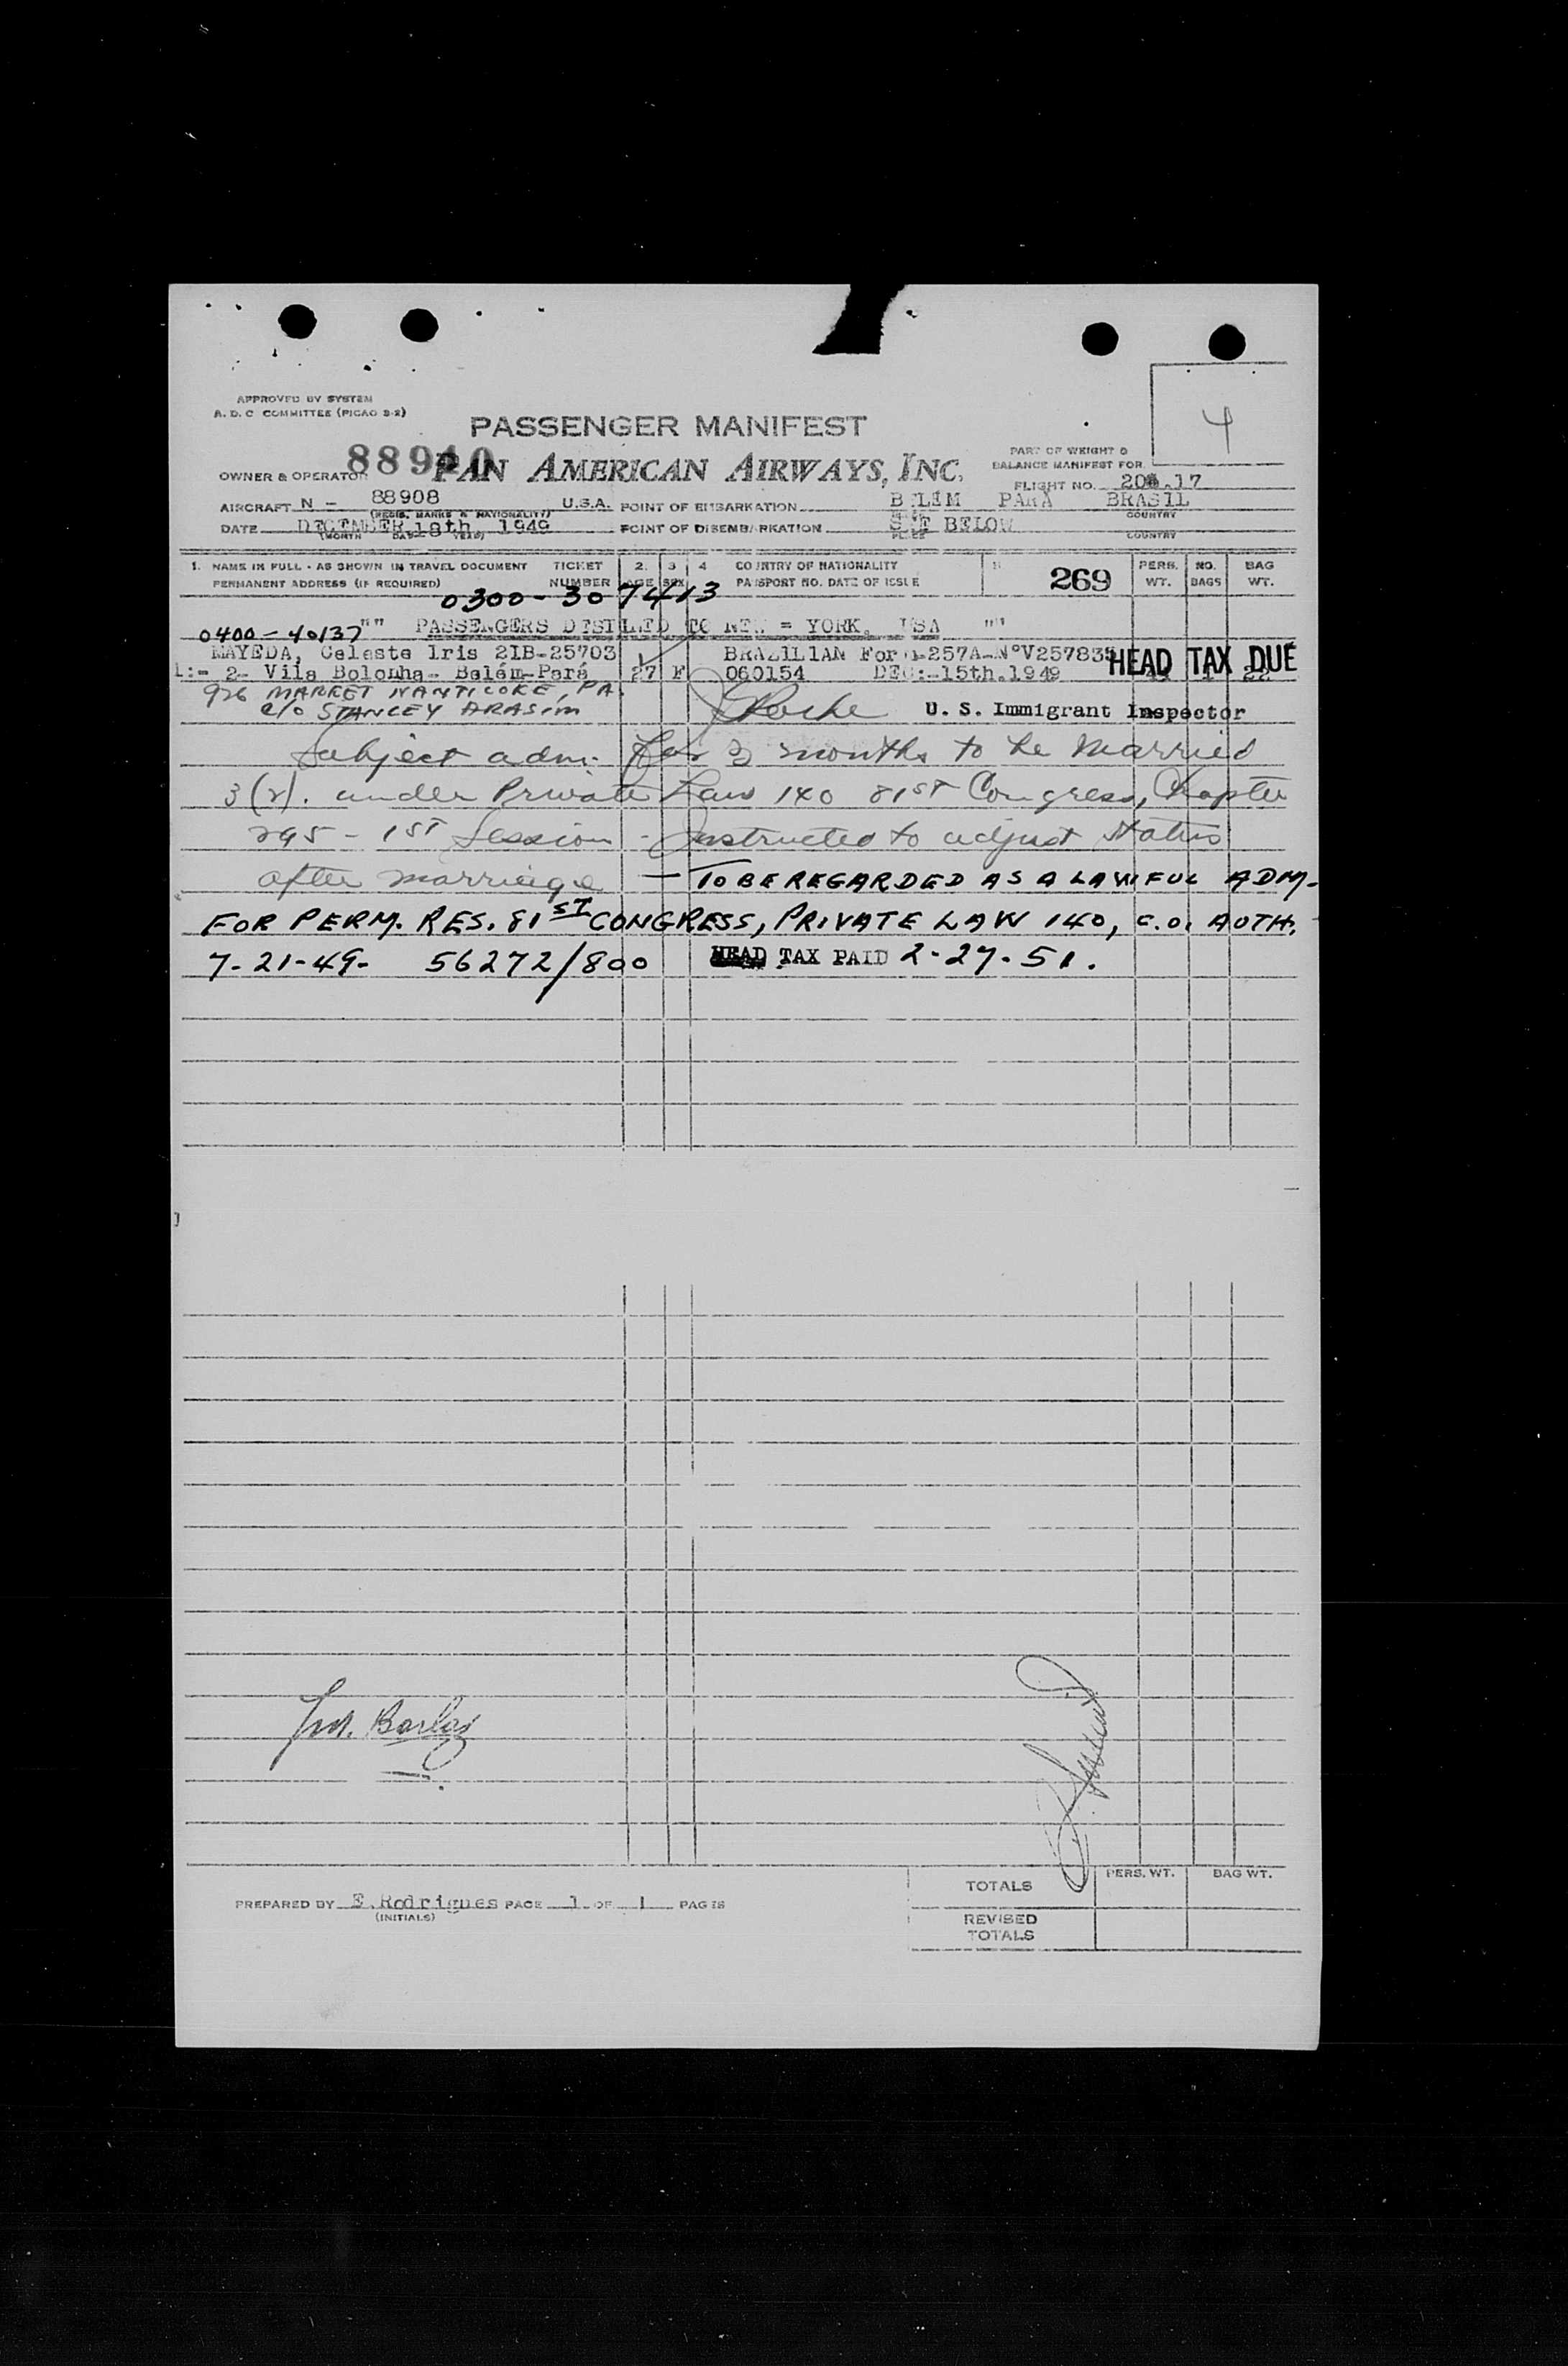 APPROVED BY SYSTEM
A. D. C COMMITTEE (PICAO 2-2)
4
PASSENGER MANIFEST
PART OF WEIGHT &
BALANCE MANIFEST FOR
OWNER & OPERATOR PAN AMERICAN AIRWAYS, INC.
FLIGHT NO. .17
AIRCRAFT N - 88908 U.S.A. POINT OF EMBARKATION BELEM PARA BRASIL
(REGIS. MARKS & NATIONALITY) COUNTRY
DATE DECEMBER 18th, 1949 POINT OF DISEMBARKATION SEE BELOW
(MONTH DAY YEAR) PLACE COUNTRY
1. NAME IN FULL - AS SHOWN IN TRAVEL DOCUMENT TICKET 2. 3 4 COUNTRY OF NATIONALITY 269 PERS. NO. BAG
PERMANENT ADDRESS (IF REQUIRED) NUMBER AGE SEX PASSPORT NO. DATE OF ISSUE WT. BAGS WT.
0300-307413
0400-40137 "" PASSENGERS DESTINED TO NEW = YORK, USA ""
MAYEDA, Celeste Iris 2IB-25703 BRAZILIAN HEAD TAX DUE
2- Vila Bolonha- Belém-Pará 27 F 060154 DEC:-15th.1949 22
926 MARKET NANTICOKE, PA.
c/o STANLEY ARASIM U. S. Immigrant Inspector
Subject adm. for 3 months to be married
3(2). under Private Law 140 81ST Congress, Chapter
295 - 1ST Session - Instructed to adjust status
after marriage — TO BE REGARDED AS A LAWFUL ADM.
FOR PERM. RES. 81ST CONGRESS, PRIVATE LAW 140, C.O. AUTH.
7-21-49- 56272/800 HEAD TAX PAID 2-27-51.
PREPARED BY E.Rodrigues PAGE 1 OF 1 PAGES
(INITIALS)
TOTALS PERS. WT. BAG WT.
REVISED
TOTALS